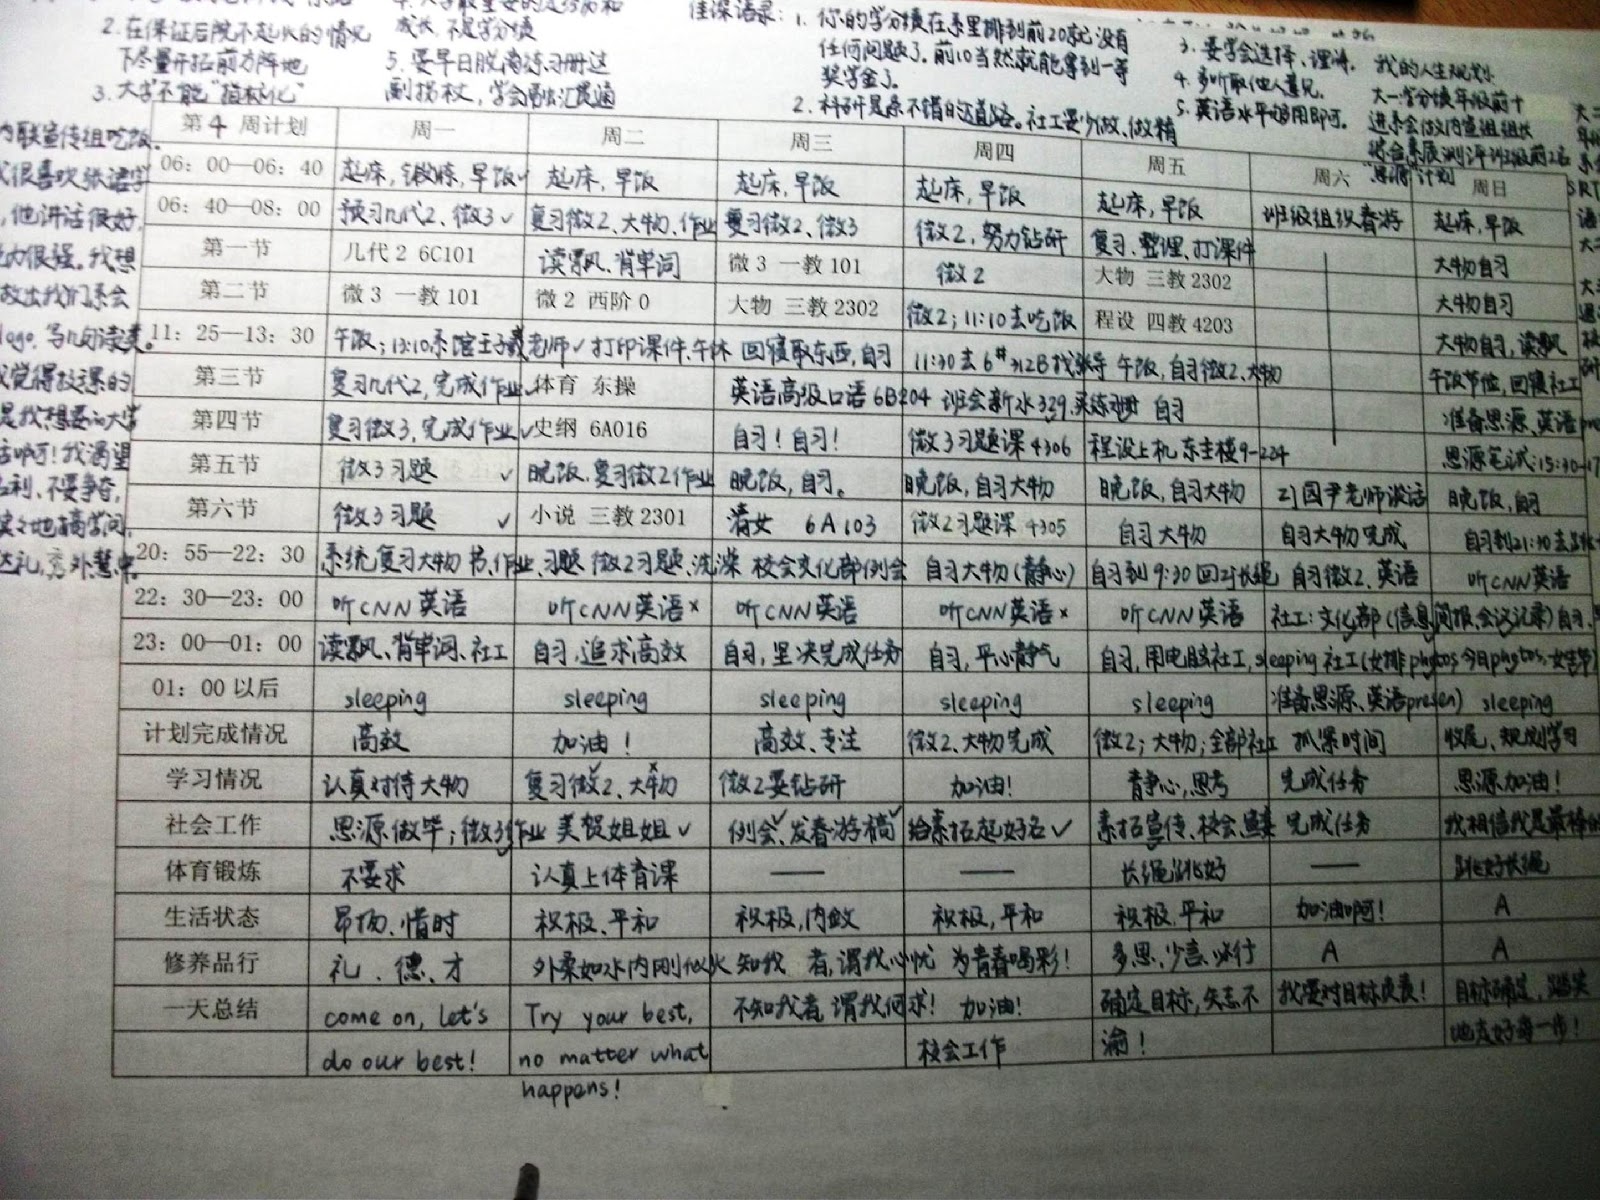 2.在保证后院不起火的情况
下尽量开拓前方阵地
3.大学不能"指标化"
成长,不是学分绩
5.要早日脱离练习册这
副拐杖,学会融汇贯通
佳深语录:1.你的学分绩在系里排到前20就没有
任何问题了。前10当然就能拿到一等
奖学金了。
2.科研是条不错的道路。社工要少做、做精
3.要学会选择、理清.
4.多听取他人意见.
5.英语水平够用即可。
我的人生规划
大一:学分绩年级前十
进系会做内宣组组长
综合素质测评班级前2名
"思源"计划
内联宣传组吃饭。
他讲话很好,
力很强。我想
做出我们系会
觉得投票的
是我想要的大学
啊!我渴望
名利、不要争夺,
达礼,秀外慧中。
第4周计划 周一 周二 周三 周四 周五 周六 周日
06:00—06:40 起床,锻炼,早饭✓ 起床,早饭 起床,早饭 起床,早饭 起床,早饭 班级组织春游 起床,早饭
06:40—08:00 预习几代2、微3✓ 复习微2、大物、作业 复习微2、微3 微2,努力钻研 复习、整理、打课件 大物自习
第一节 几代2 6C101 读飘、背单词 微3 一教101 微2 大物 三教2302 大物自习
第二节 微3 一教101 微2 西阶0 大物 三教2302 微2;11:10去吃饭 程设 四教4203 大物自习,读飘
11:25—13:30 午饭;13:10系馆王子羲老师✓ 打印课件、午休 回寝取东西,自习 11:30去6#312B找 午饭,自习微2、大物 午饭节位,回寝社工
第三节 复习几代2,完成作业✓ 体育 东操 英语高级口语6B204 班会新水339,买练习册 自习 准备思源、英语pre
第四节 复习微3,完成作业✓ 史纲 6A016 自习!自习! 微3习题课4306 程设上机 东主楼9-224 思源笔试:15:30-17
第五节 微3习题 ✓ 晚饭,复习微2作业 晚饭,自习。 晚饭,自习大物 晚饭,自习大物 尹老师谈话 晚饭,自习
第六节 微3习题 ✓ 小说 三教2301 清女 6A103 微2习题课4305 自习大物 自习大物完成 自习到21:30去
20:55—22:30 系统复习大物书、作业、习题 微2习题、洗澡 校会文化部例会 自习大物(静心) 自习到9:30回 长绳 自习微2、英语 听CNN英语
22:30—23:00 听CNN英语 听CNN英语× 听CNN英语 听CNN英语× 听CNN英语 社工:文化部(信息简报、会议记录)自习、
23:00—01:00 读飘、背单词、社工 自习,追求高效 自习,坚决完成任务 自习,平心静气 自习,用电脑社工,sleeping 社工(女排photos今日photos、女生节)
01:00以后 sleeping sleeping sleeping sleeping sleeping 准备思源、英语presen) sleeping
计划完成情况 高效 加油! 高效、专注 微2、大物完成 微2;大物;全部社工 抓紧时间 收尾、规划学习
学习情况 认真对待大物 复习微2✓、大物× 微2要钻研 加油! 静心,思考 完成任务 思源加油!
社会工作 思源做毕;微3作业 美贺姐姐✓ 例会✓、发春游稿✓ 给素拓起好名✓ 素拓宣传、校会 完成任务 我相信我是最棒的
体育锻炼 不要求 认真上体育课 —— —— 长绳跳好 —— 跳好长绳
生活状态 昂扬、惜时 积极、平和 积极,内敛 积极,平和 积极、平和 加油啊! A
修养品行 礼、德、才 外柔如水内刚似火 知我者,谓我心忧 为青春喝彩! 多思、少言、必行 A A
一天总结 come on, let's Try your best, 不知我者,谓我何求! 加油! 确定目标,矢志不 我要对目标负责! 目标确定,踏实
do our best! no matter what 校会工作 渝! 地走好每一步!
happens!